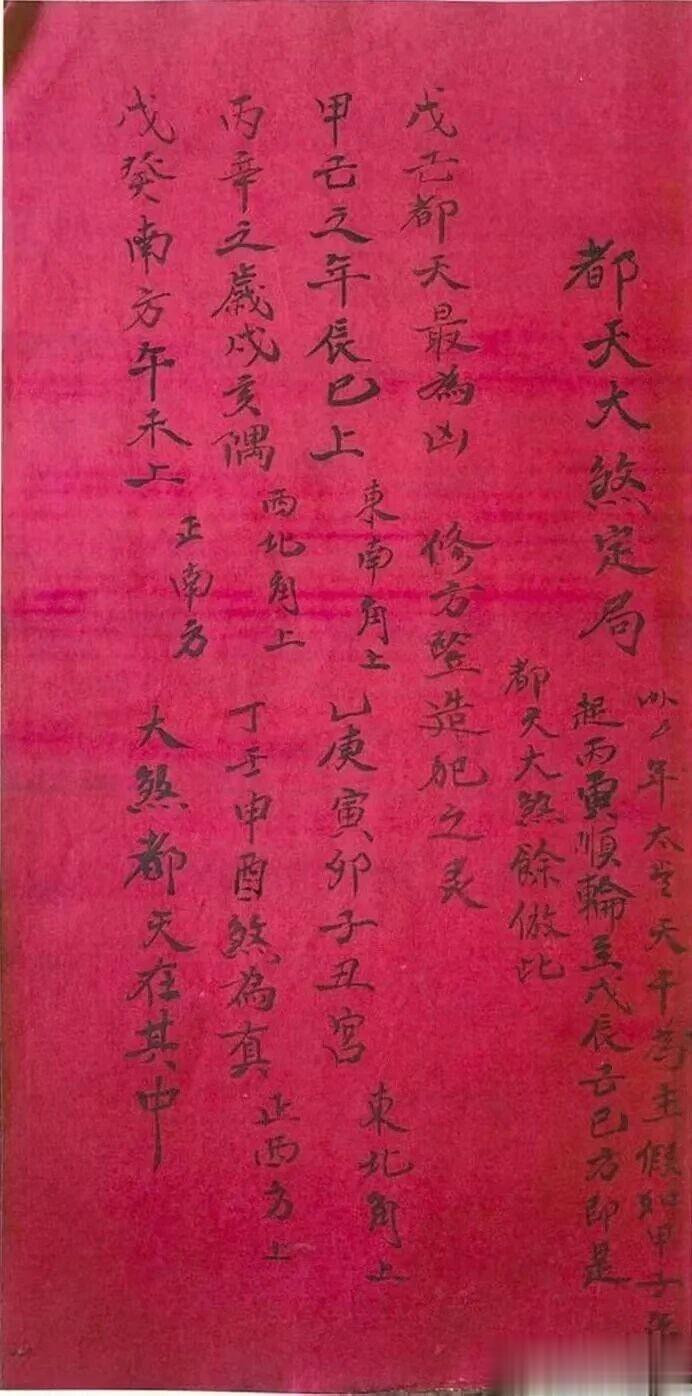 都天大煞定局
以年太岁天干為主假如甲子年
起丙寅順輪至戊辰己巳方即是
都天大煞餘倣此
戊己都天最為凶 修方豎造犯之灵
甲己之年辰巳上 東南角上 乙庚寅卯子丑宮 東北角上
丙辛之歲戌亥隅 西北角上 丁壬申酉煞為真 正西方上
戊癸南方午未上 正南方 大煞都天在其中